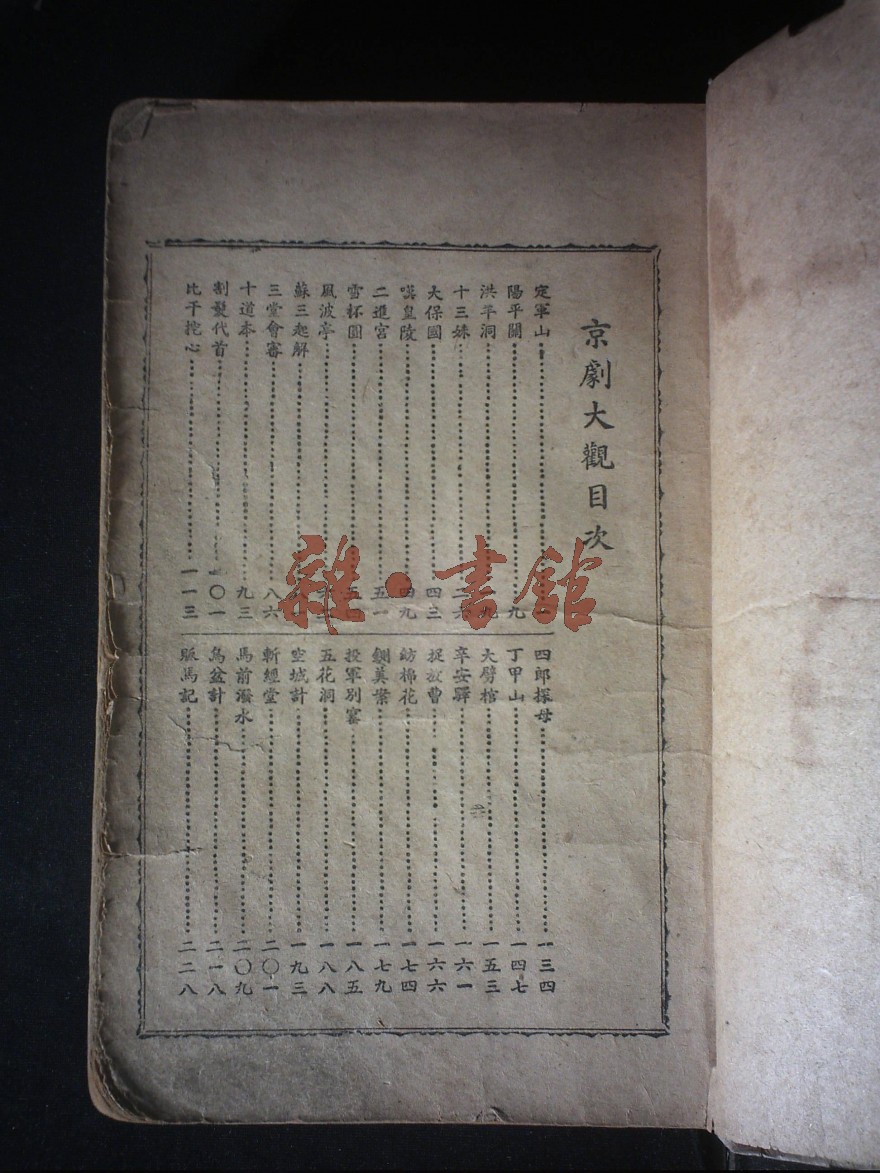 京劇大觀目次
定軍山
陽平關 九
洪羊洞
十三妹 二六
大保國 四三
嘆皇陵 四九
二進宮 五一
雪杯圓
風波亭
蘇三起解
三堂會審 八六
十道本 九三
割髮代首 一〇一
比干挖心 一一三
四郎探母 一三四
丁甲山 一四七
大劈棺 一五三
辛安驛 一六一
捉放曹 一六六
紡棉花 一七四
鍘美案 一七九
投軍別窰 一八五
五花洞 一八八
空城計 一九三
斬經堂 二〇一
馬前潑水 二〇九
烏盆計 二一八
販馬記 二二八
雜·書館